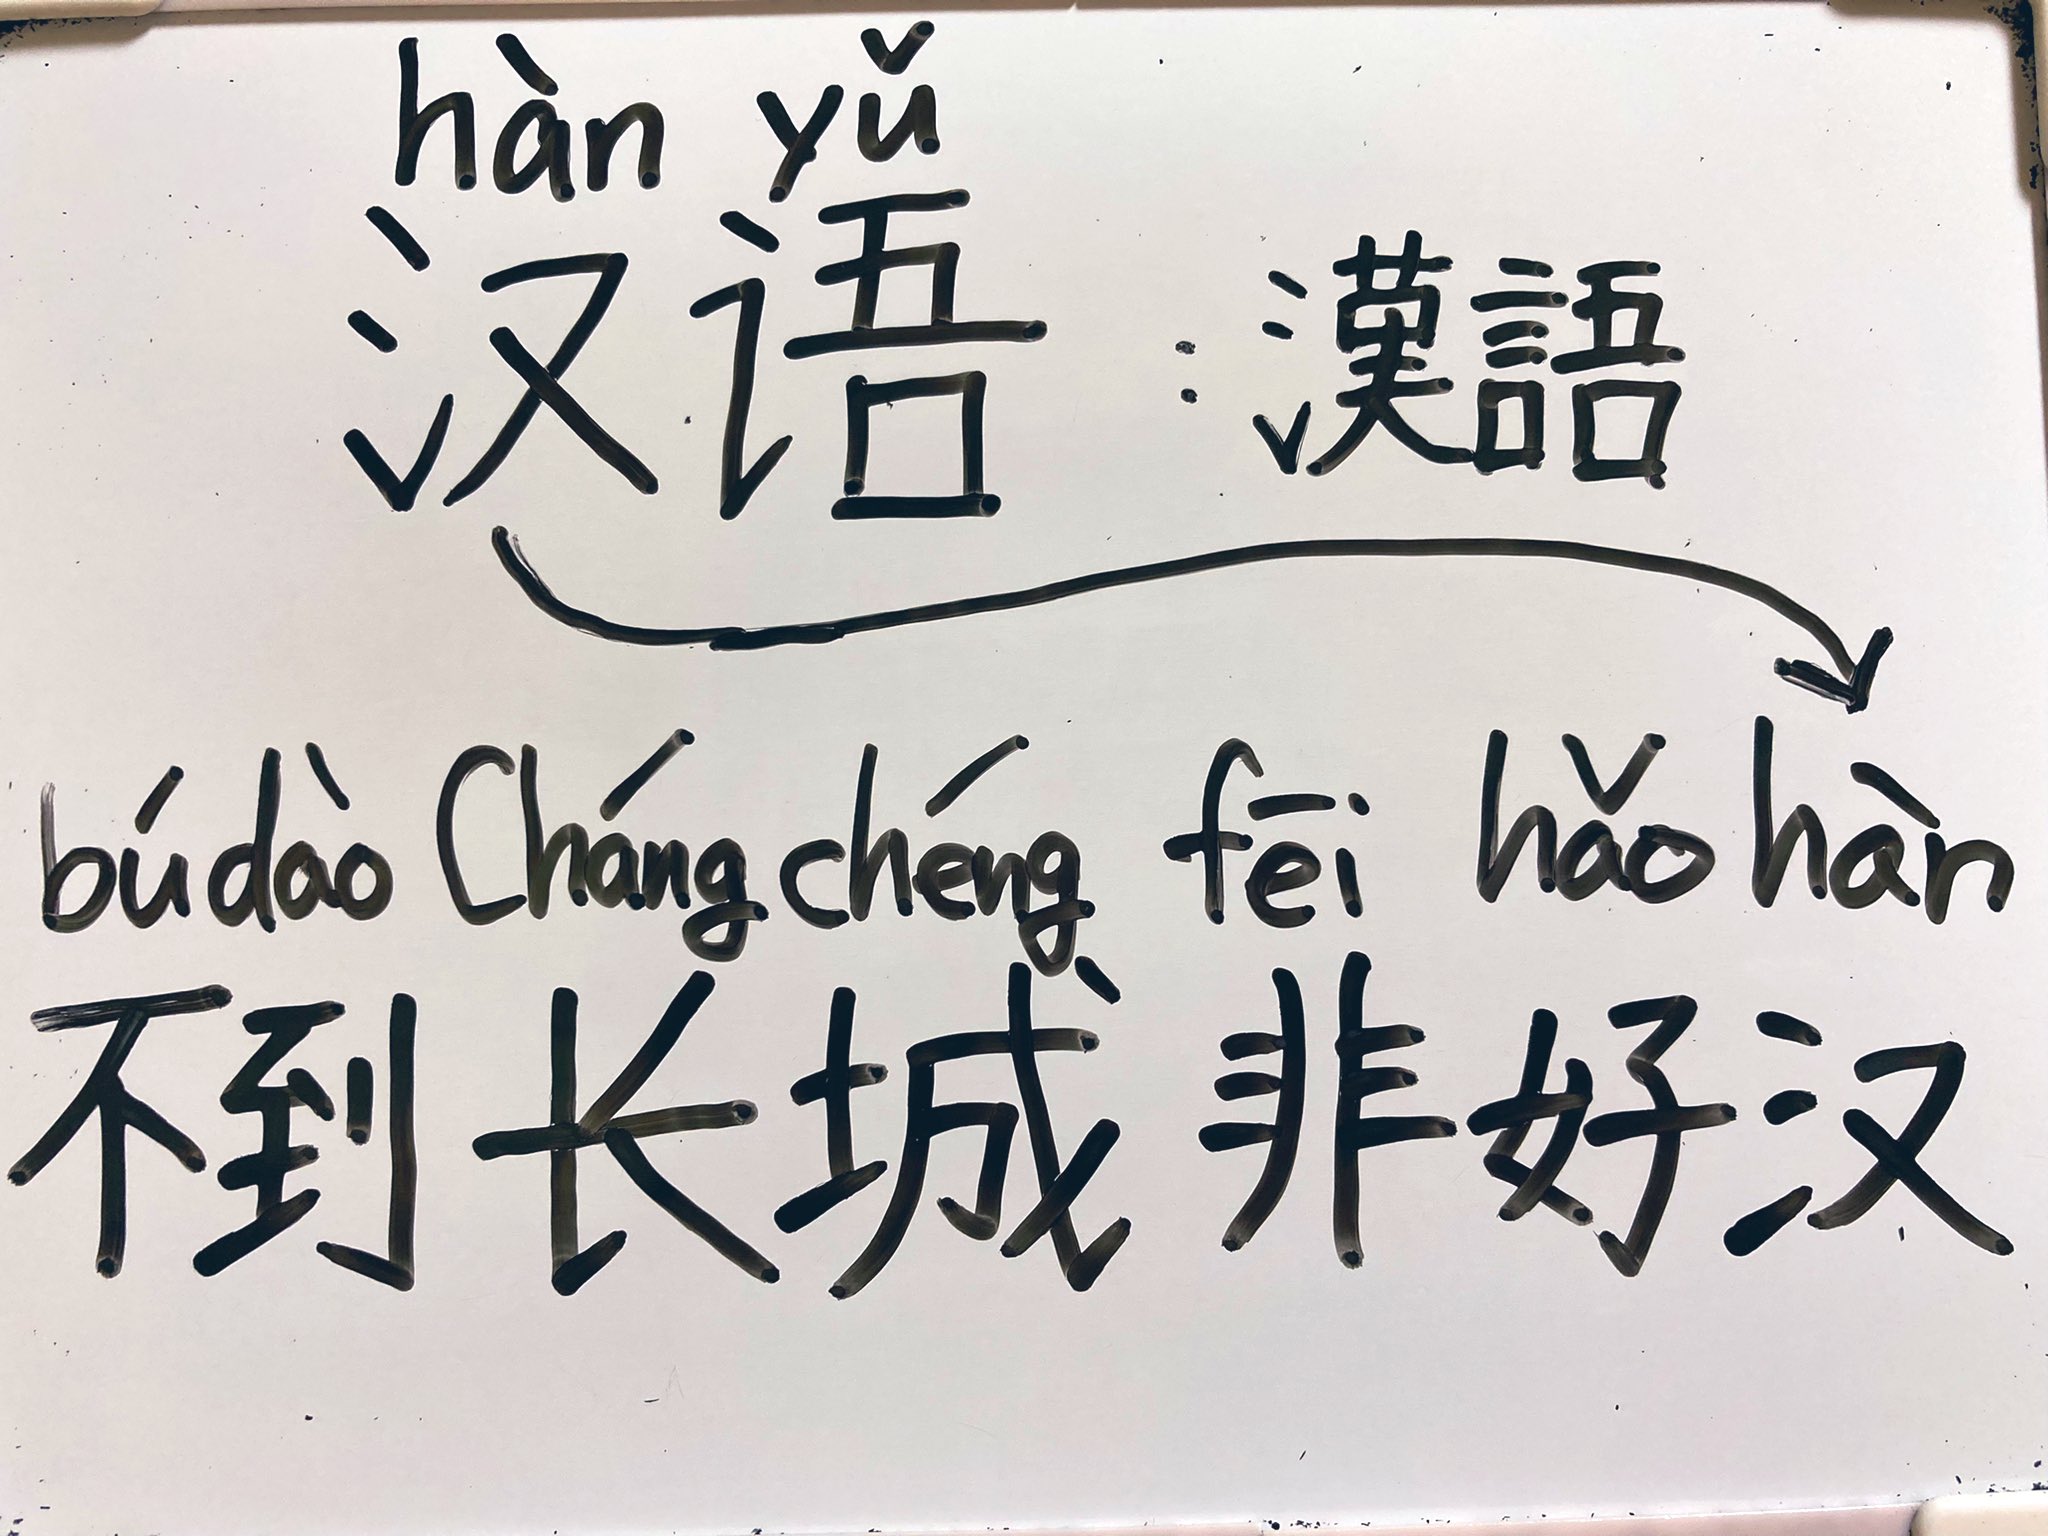 hàn yǔ
汉语 : 漢語
búdào Chángchéng fēi hǎo hàn
不到 长城 非 好汉